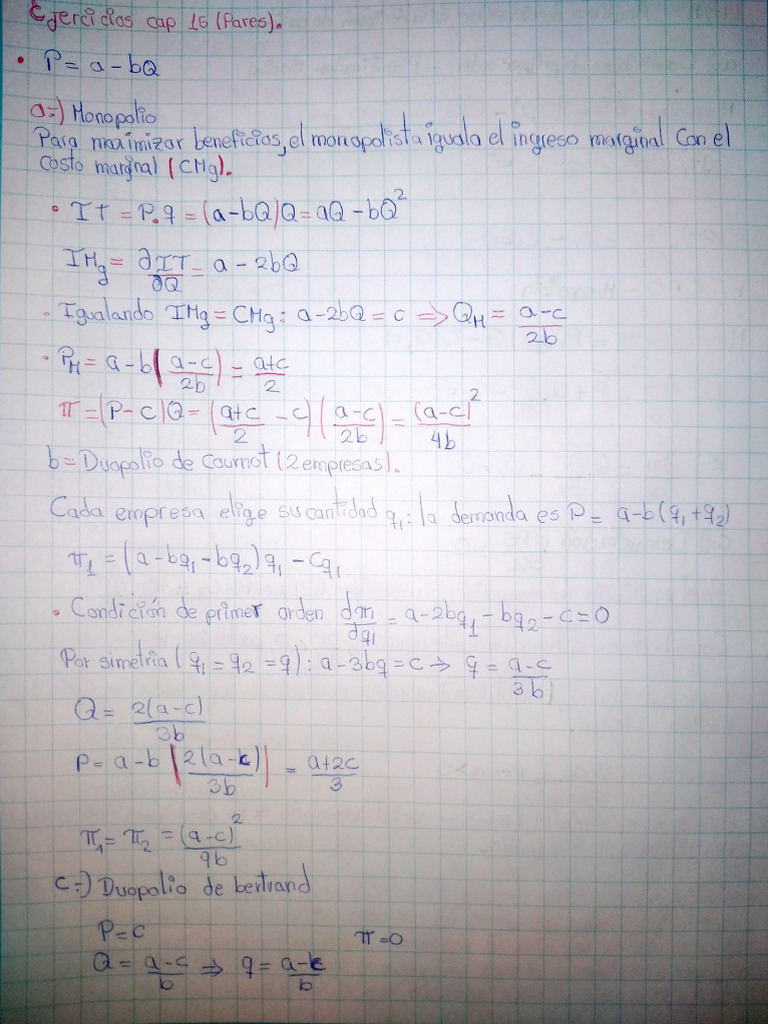 Ejercicios cap 15 (Pares).
• P = a - bQ
a=) Monopolio
Para maximizar beneficios, el monopolista iguala el ingreso marginal con el
costo marginal (CMg).
• IT = P.q = (a-bQ)Q = aQ - bQ²
IMg = ∂IT/∂Q = a - 2bQ
• Igualando IMg = CMg : a-2bQ = c ⇒ Q_M = (a-c)/2b
• P_M = a - b((a-c)/2b) = (a+c)/2
π = (P-c)Q = ((a+c)/2 - c)((a-c)/2b) = (a-c)²/4b
b = Duopolio de Cournot (2 empresas).
Cada empresa elige su cantidad q₁ : la demanda es P = a-b(q₁+q₂)
π₁ = (a-bq₁-bq₂)q₁ - cq₁
• Condición de primer orden dπ₁/dq₁ = a-2bq₁ - bq₂ - c = 0
Por simetria (q₁ = q₂ = q) : a-3bq = c → q = (a-c)/3b
Q = 2(a-c)/3b
P = a - b(2(a-c)/3b) = (a+2c)/3
π₁ = π₂ = (a-c)²/9b
c=) Duopolio de bertrand
P = c π = 0
Q = (a-c)/b ⇒ q = (a-c)/b